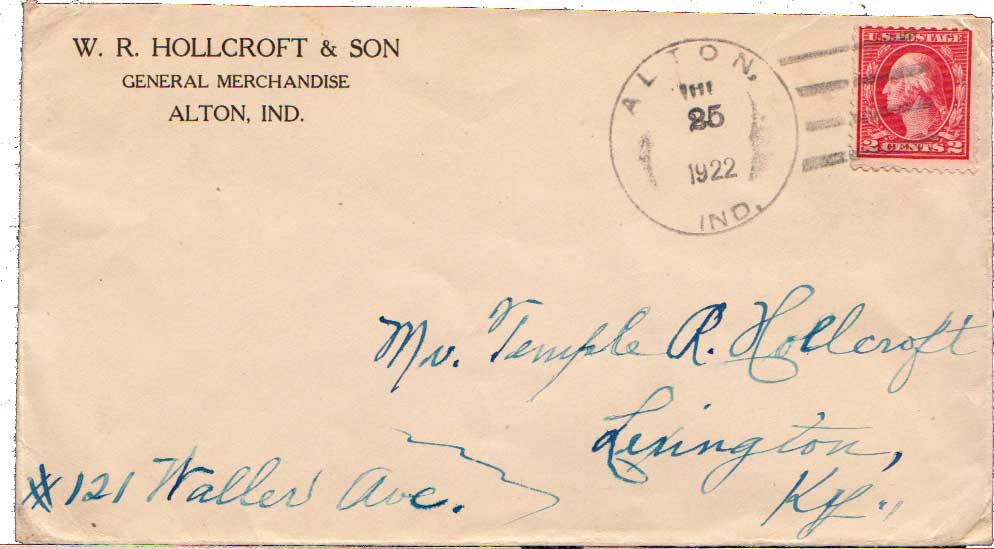 W. R. HOLLCROFT & SON
GENERAL MERCHANDISE
ALTON, IND.
ALTON,
25
1922
IND.
U.S. POSTAGE
2 CENTS 2
Mr. Temple R. Hollcroft
Lexington,
Ky.,
#121 Waller Ave.